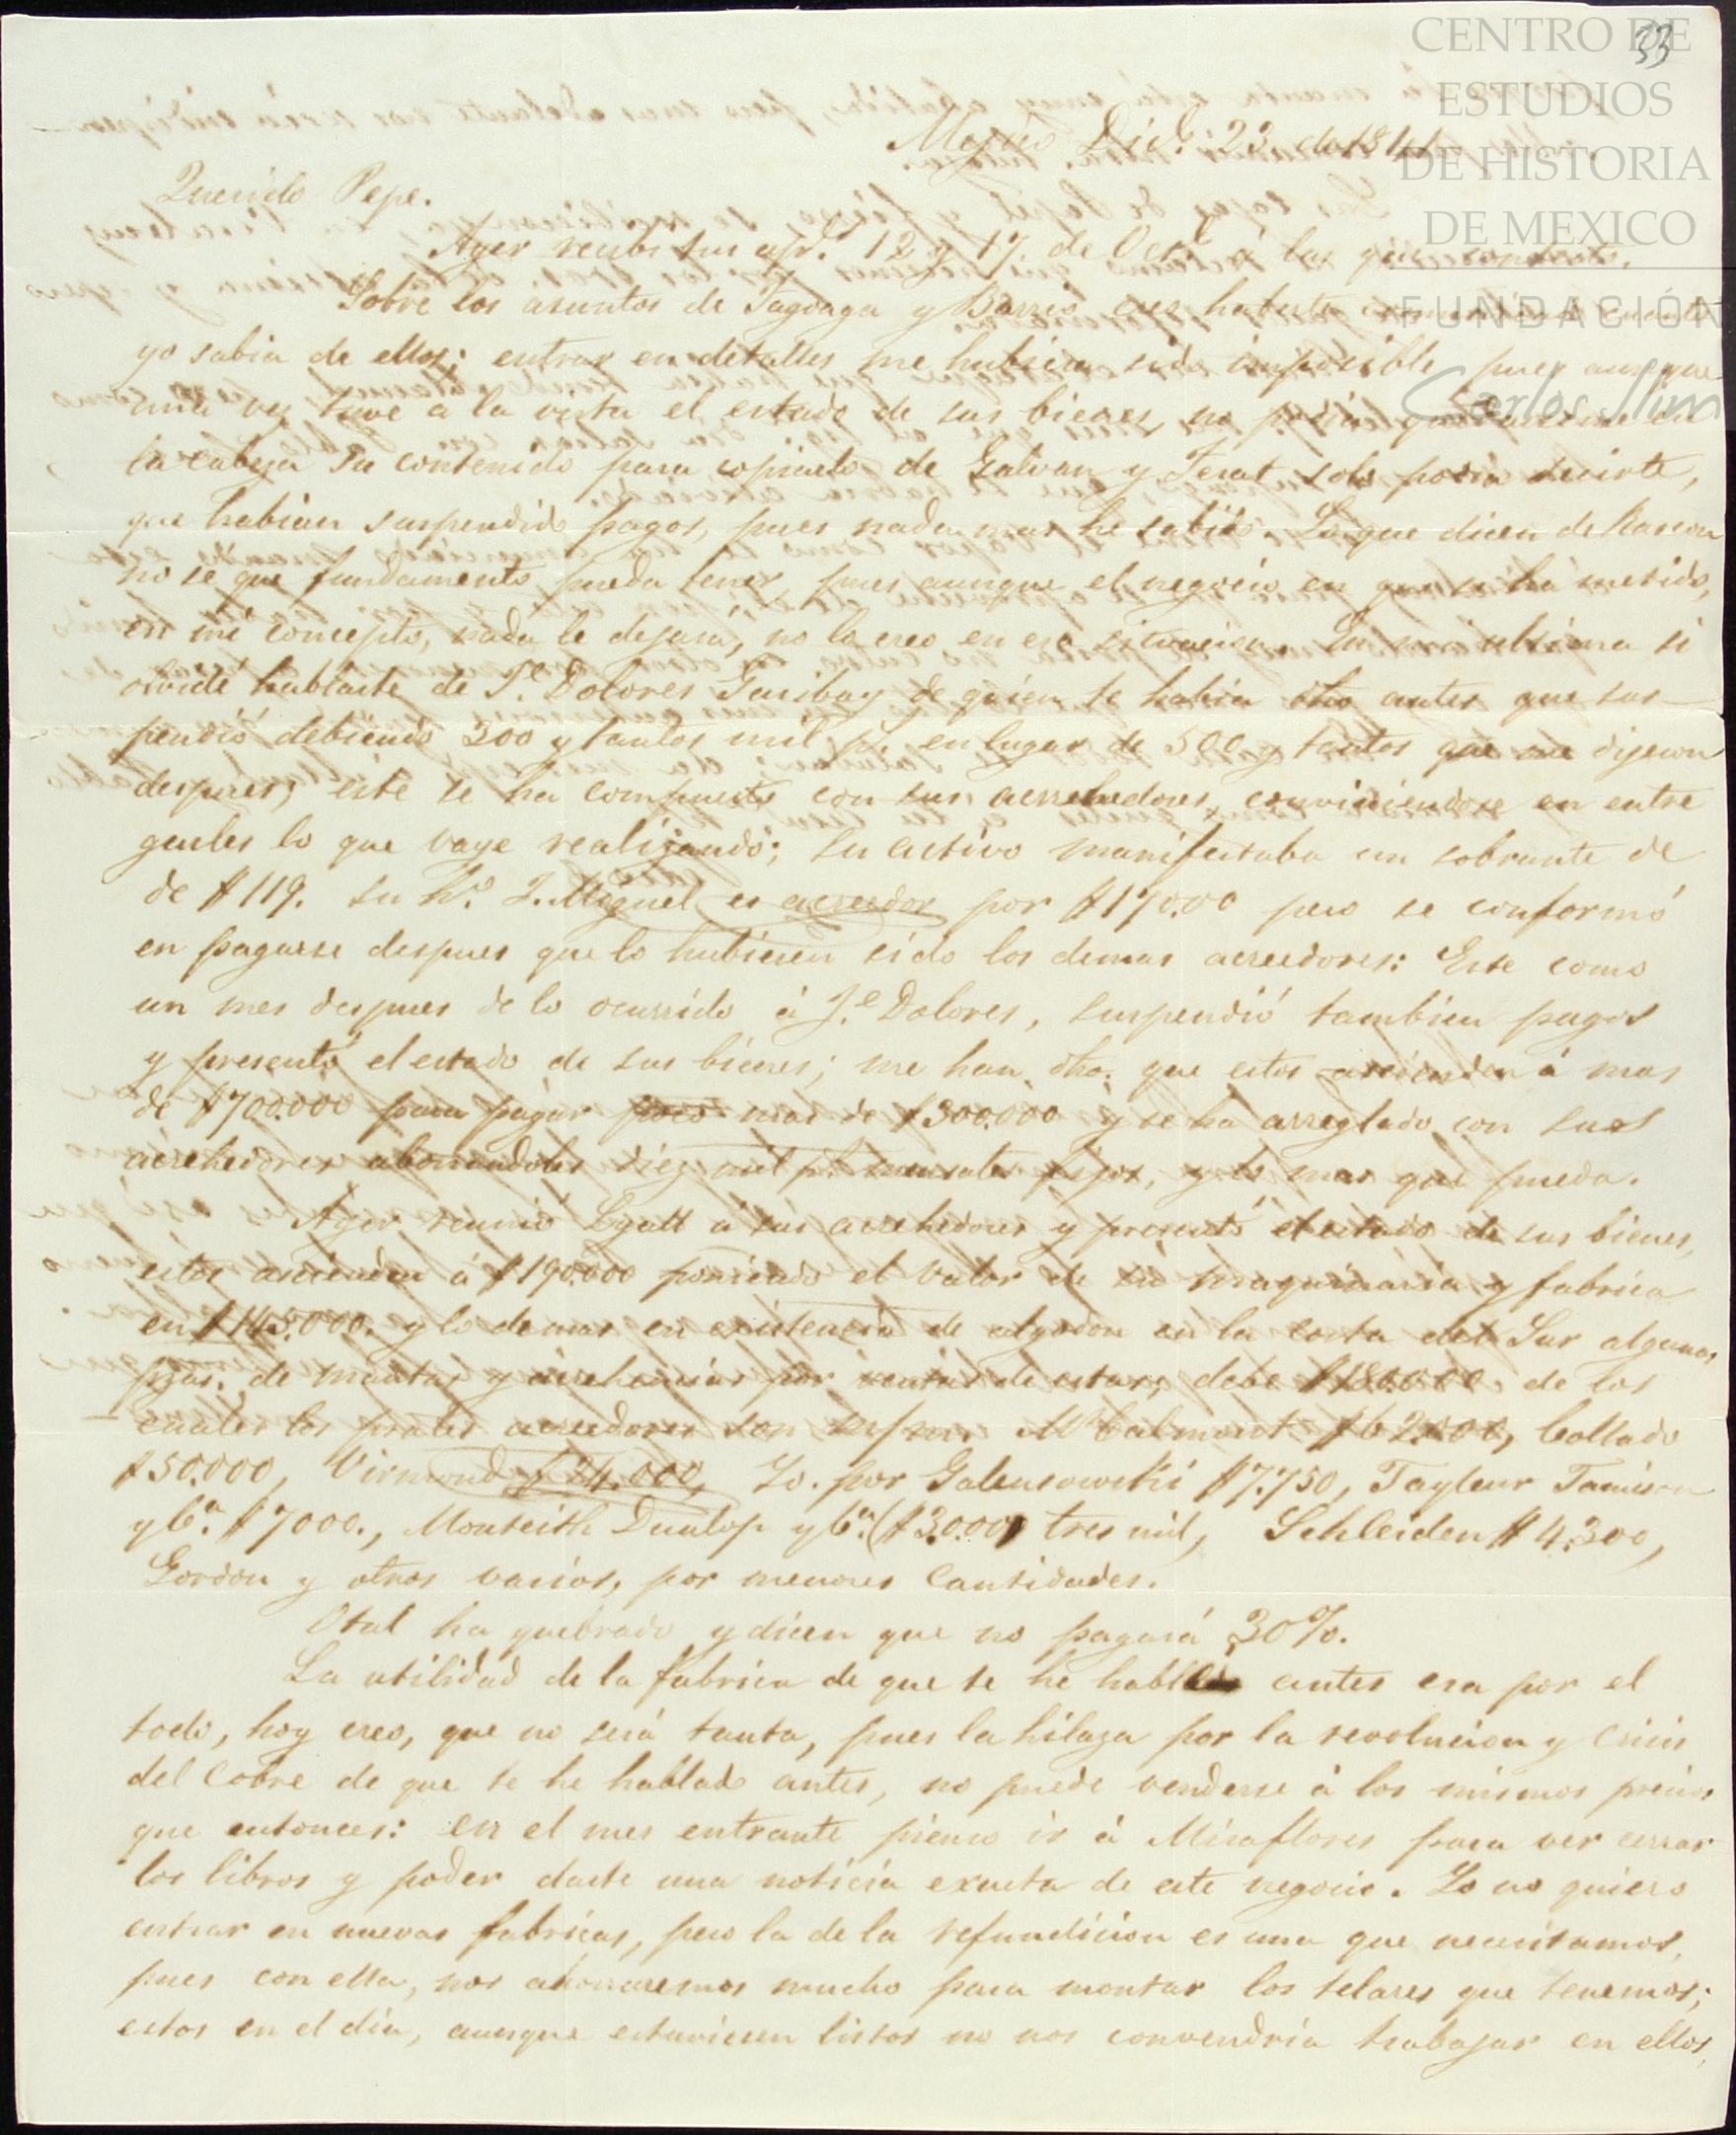 CENTRO DE
ESTUDIOS
DE HISTORIA
DE MEXICO
FUNDACIÓN
Carlos Slim
33
Mexico Dic.e 23 de 1841
Querido Pepe.
Ayer recibi tus apr.s 12 y 17. de Oct.e á las que contesto.
Sobre los asuntos de Fagoaga y Barrio creo haberte comunicado cuanto
yo sabia de ellos; entrar en detalles me hubiera sido imposible pues aunque
una vez tuve a la vista el estado de sus bienes, no podia quedarseme en
la cabeza su contenido para copiarlo de Galvan y Terat solo podia decirte,
que habian suspendido pagos, pues nada mas he sabido. Lo que dicen de Rascon
no se que fundamento pueda tener, pues aunque el negocio en que se ha metido,
en mi concepto, nada le dejará, no lo creo en esa situacion. En mi ultima si
olvidé hablarte de J.e Dolores Garibay de quien te habia dho antes que sus-
pendió debiendo 300 y tantos mil p.s en lugar de 500 y tantos que me dijeron
despues; este se ha compuesto con sus acrehedores, conviniendose en entre
garles lo que vaya realizando; su activo manifestaba un sobrante de
de $119. su h.o J. Miguel es acreedor por $170.00 pero se conformó
en pagarse despues que lo hubiesen sido los demas acreedores: Este como
un mes despues de lo ocurrido á J.e Dolores, suspendió tambien pagos
y presentó el estado de sus bienes; me han dho. que estos ascienden á mas
de $700.000 para pagar poco mas de $300.000 y se ha arreglado con sus
acrehedores abonandoles diez mil p.s mensales fijos, y lo mas que pueda.
Ayer reunió Lyall á sus acrehedores y presentó el estado de sus bienes,
estos ascienden á $190.000 poniendo el valor de su maquinaria y fabrica
en $145.000. y lo demas en existencia de algodon en la costa del Sur algunas
pzas. de mantas y acrehencias por ventas de estas; debe $180.000. de los
cuales los prales acreedores son M.cCalmont $62.000, Collado
$50.000, Virmond $24.000, Yo. por Galensowski $7.750, Tayleur Jamison
y C.a $7000., Monteith Dunlop y C.a ($3.000) tres mil, Schleiden $4.300,
Gordon y otros varios, por menores Cantidades.
Otal ha quebrado y dicen que no pagará 30%.
La utilidad de la fabrica de que te he hablado antes era por el
todo, hoy creo, que no será tanta, pues la hilaza por la revolucion y Crisis
del Cobre de que te he hablado antes, no puede venderse á los mismos precios
que entonces: en el mes entrante pienso ir á Miraflores para ver cerrar
los libros y poder darte una noticia exacta de este negocio. Yo no quiero
entrar en nuevas fabricas, pero la de la refundicion es una que necesitamos,
pues con ella, nos ahorraremos mucho para montar los telares que tenemos;
estos en el dia, aunque estuviesen listos no nos convendria trabajar en ellos,